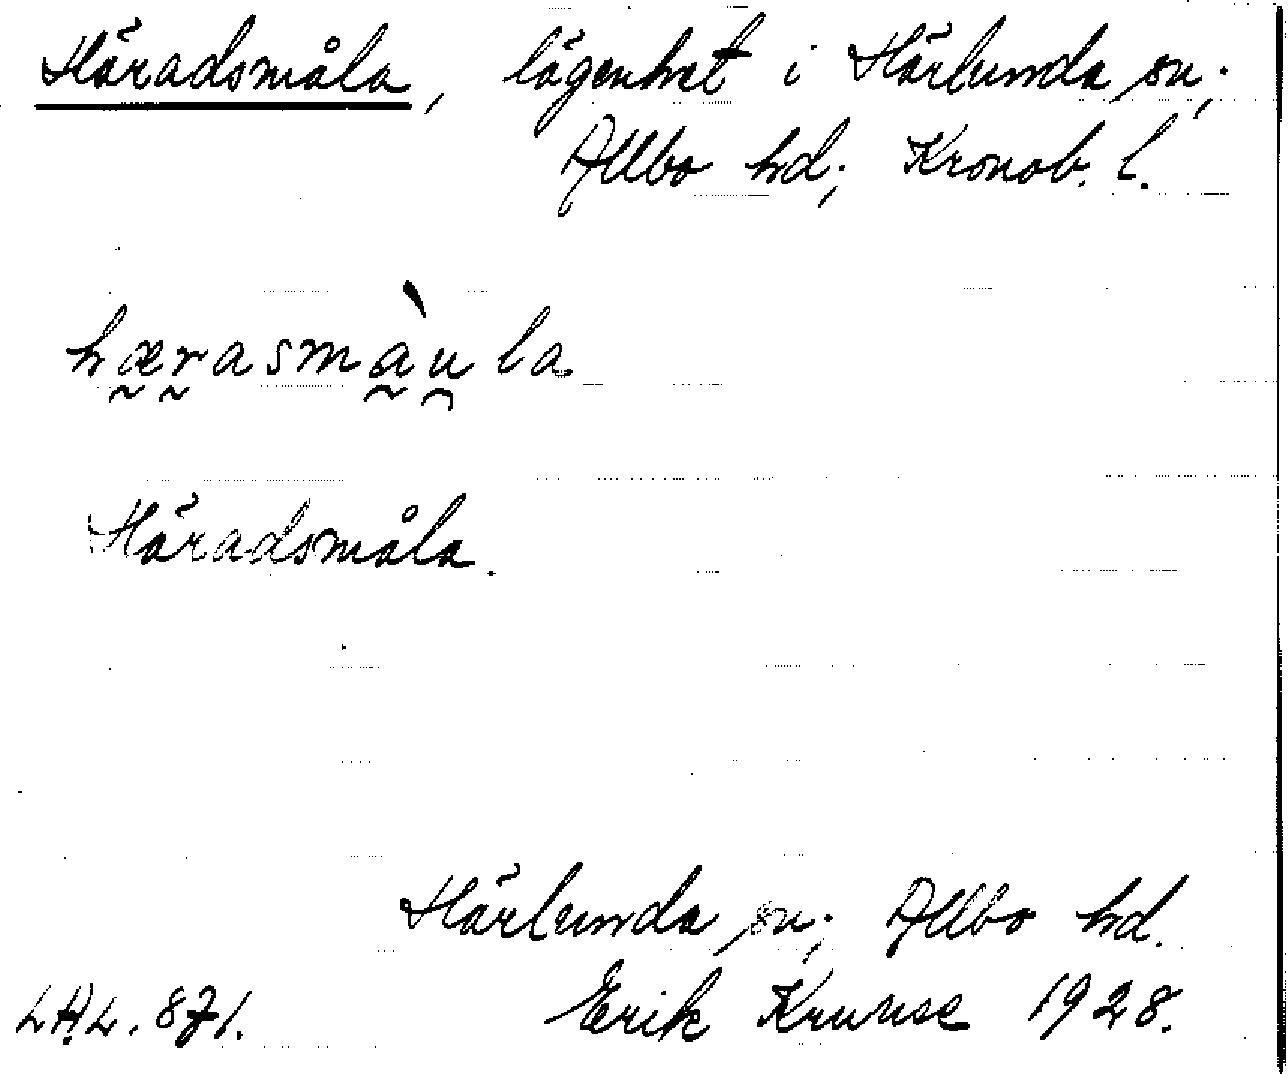 Häradsmåla, lägenhet i Härlunda sn;
Allbo hd; Kronob. l.
hæ̰r̰asmà̰u̯la
Häradsmåla.
Härlunda sn; Allbo hd.
Erik Krunse 1928.
L.A.L. 871.